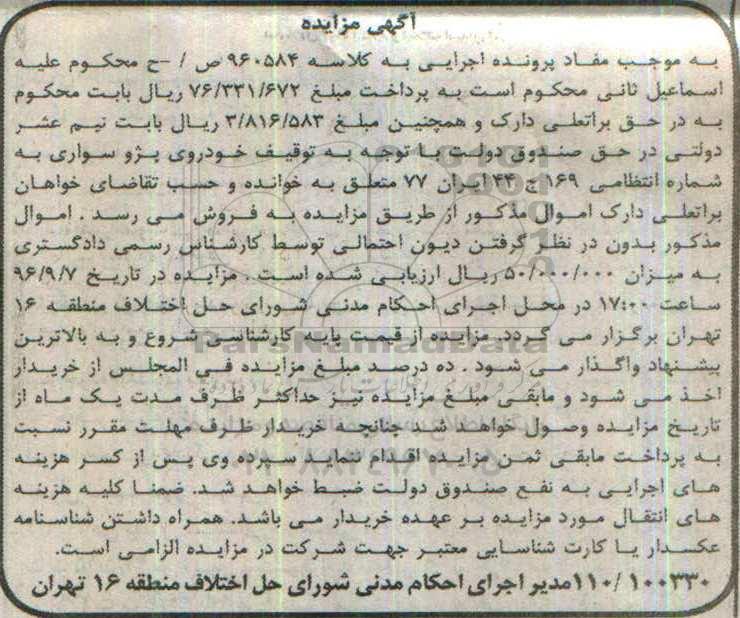 آگهی مزایده
به موجب مفاد پرونده اجرایی به کلاسه ۹۶۰۵۸۴ ص / -ح محکوم علیه
اسماعیل ثانی محکوم است به پرداخت مبلغ ۷۶/۳۳۱/۶۷۲ ریال بابت محکوم
به در حق براتعلی دارک و همچنین مبلغ ۳/۸۱۶/۵۸۳ ریال بابت نیم عشر
دولتی در حق صندوق دولت با توجه به توقیف خودروی پژو سواری به
شماره انتظامی ۱۶۹ ج ۴۴ ایران ۷۷ متعلق به خوانده و حسب تقاضای خواهان
براتعلی دارک اموال مذکور از طریق مزایده به فروش می رسد . اموال
مذکور بدون در نظر گرفتن دیون احتمالی توسط کارشناس رسمی دادگستری
به میزان ۵۰/۰۰۰/۰۰۰ ریال ارزیابی شده است . مزایده در تاریخ ۹۶/۹/۷
ساعت ۱۷:۰۰ در محل اجرای احکام مدنی شورای حل اختلاف منطقه ۱۶
تهران برگزار می گردد. مزایده از قیمت پایه کارشناسی شروع و به بالاترین
پیشنهاد واگذار می شود . ده درصد مبلغ مزایده فی المجلس از خریدار
اخذ می شود و مابقی مبلغ مزایده نیز حداکثر ظرف مدت یک ماه از
تاریخ مزایده وصول خواهد شد چنانچه خریدار ظرف مهلت مقرر نسبت
به پرداخت مابقی ثمن مزایده اقدام ننماید سپرده وی پس از کسر هزینه
های اجرایی به نفع صندوق دولت ضبط خواهد شد. ضمنا کلیه هزینه
های انتقال مورد مزایده بر عهده خریدار می باشد. همراه داشتن شناسنامه
عکسدار یا کارت شناسایی معتبر جهت شرکت در مزایده الزامی است.
۱۱۰/۱۰۰۳۳۰ مدیر اجرای احکام مدنی شورای حل اختلاف منطقه ۱۶ تهران
ParsNamadData